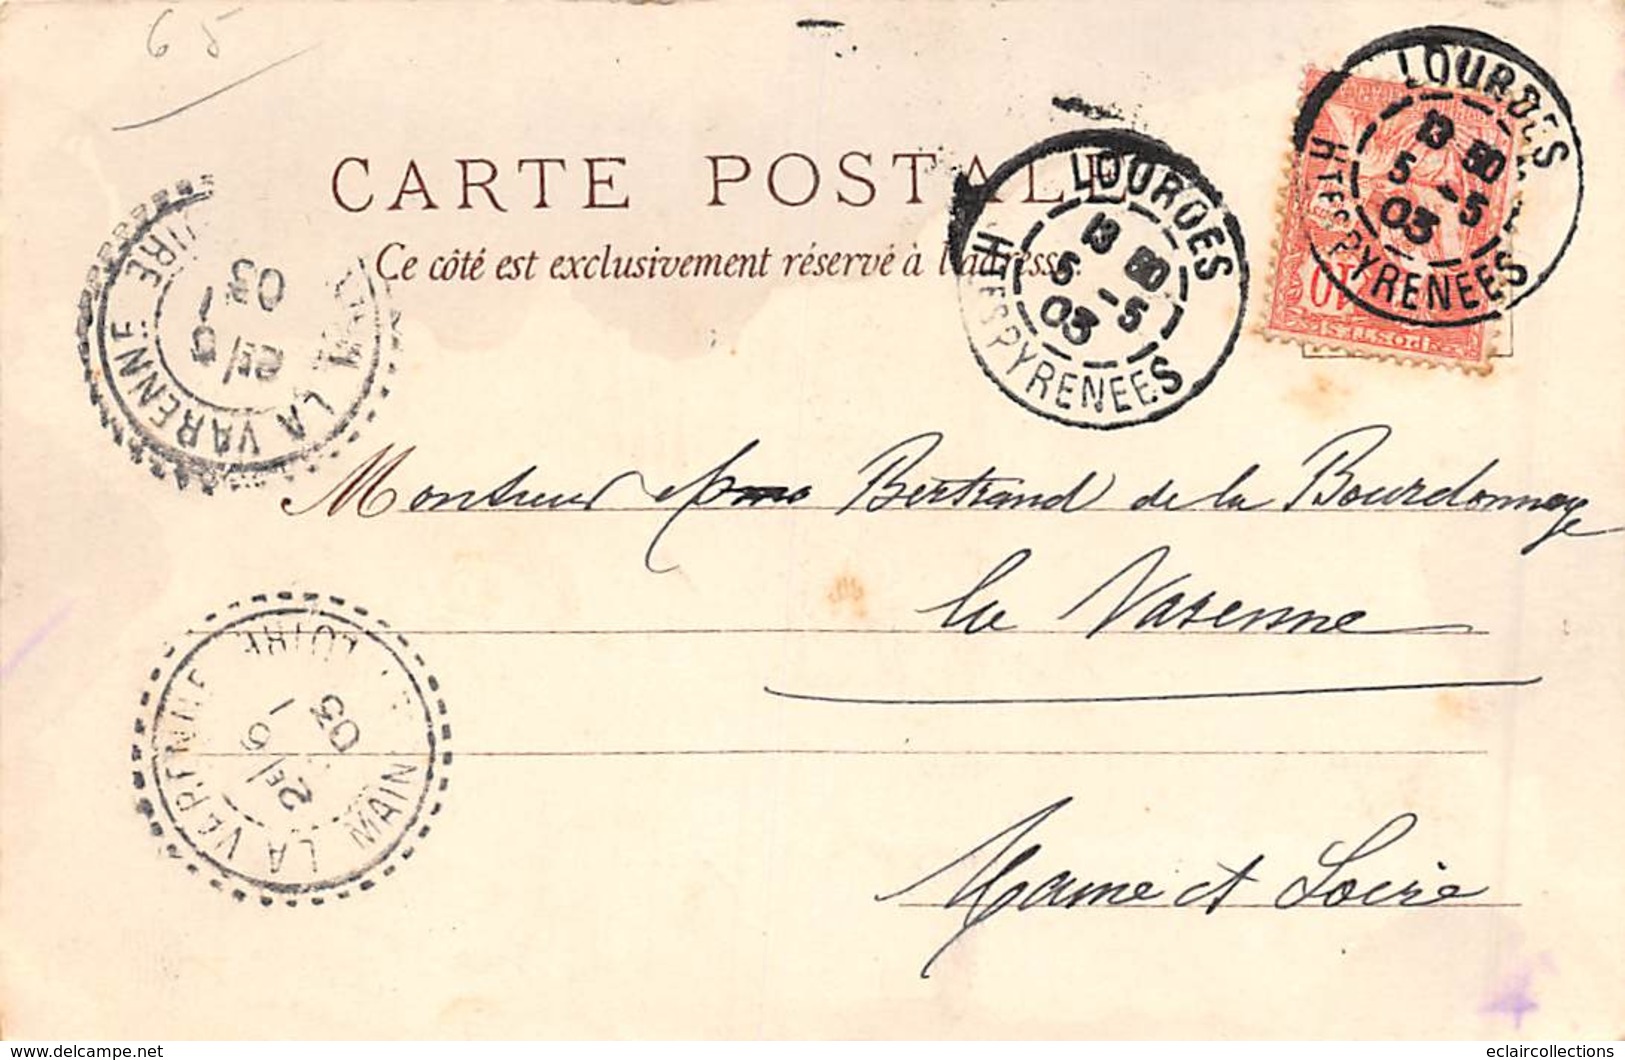 65
CARTE POSTALE
Ce côté est exclusivement réservé à l'adresse.
LOURDES
13 50
5 - 5
03
HTES PYRENEES
LOURDES
13 50
5 - 5
03
HTES PYRENEES
10
POSTES
LA VARENNE
03
Monsieur Bertrand de la Bourdonnaye
la Varenne
Maine et Loire
LA VARENNE
2E/6
03
MAIN LOIRE
eclaircollections